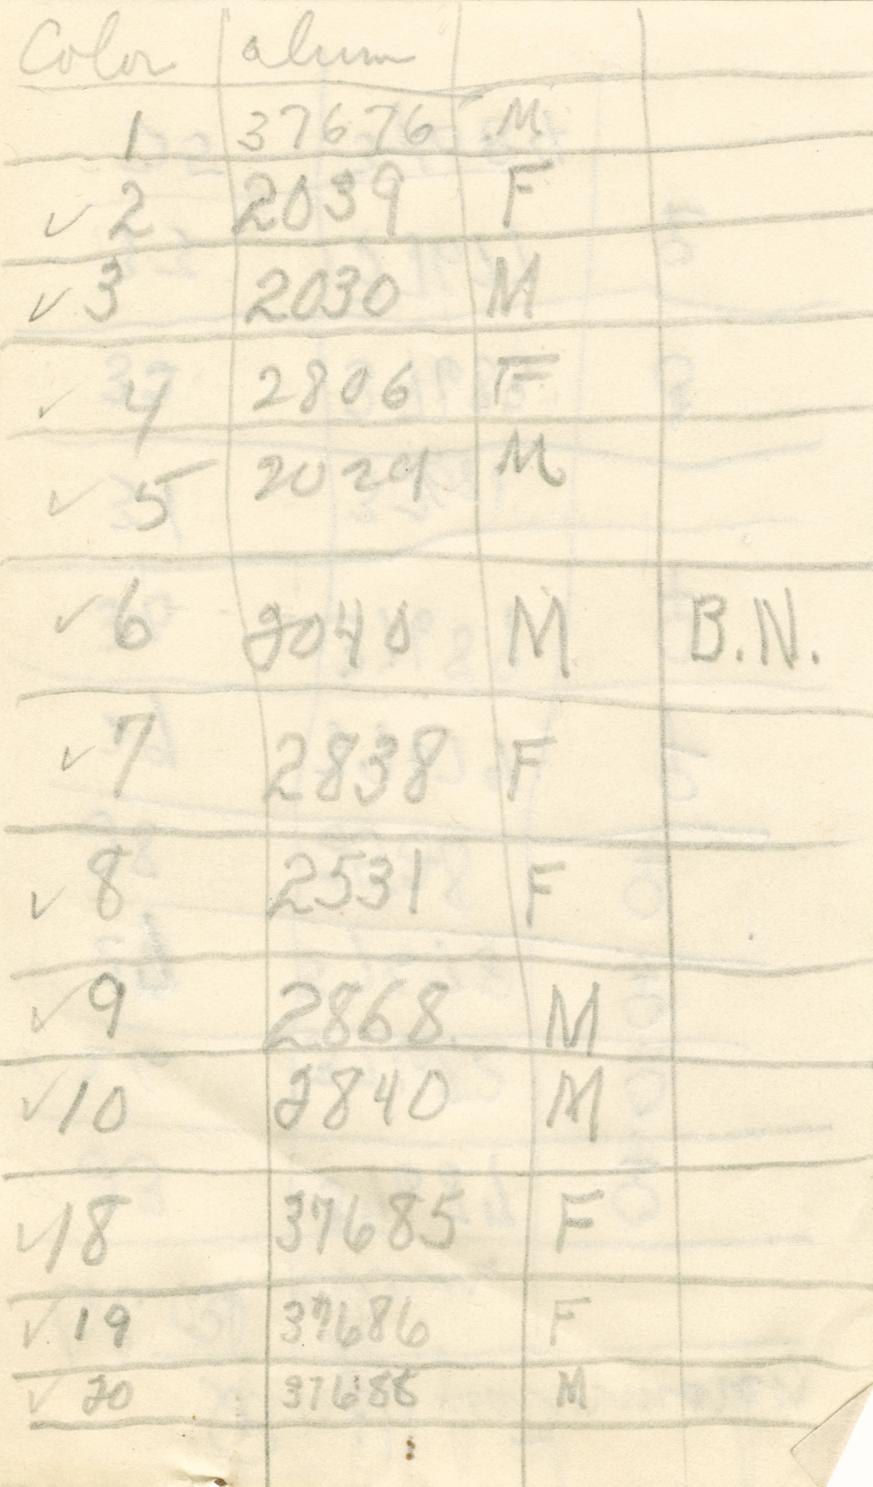 Color alum
1 37676 M
✓ 2 2039 F
✓ 3 2030 M
✓ 4 2806 F
✓ 5 2029 M
✓ 6 2040 M B.N.
✓ 7 2838 F
✓ 8 2531 F
✓ 9 2868 M
✓ 10 2840 M
✓ 18 37685 F
✓ 19 37686 F
✓ 20 M